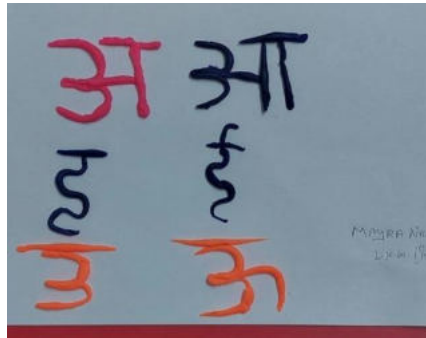 अ आ
इ ई
उ ऊ
MAYRA